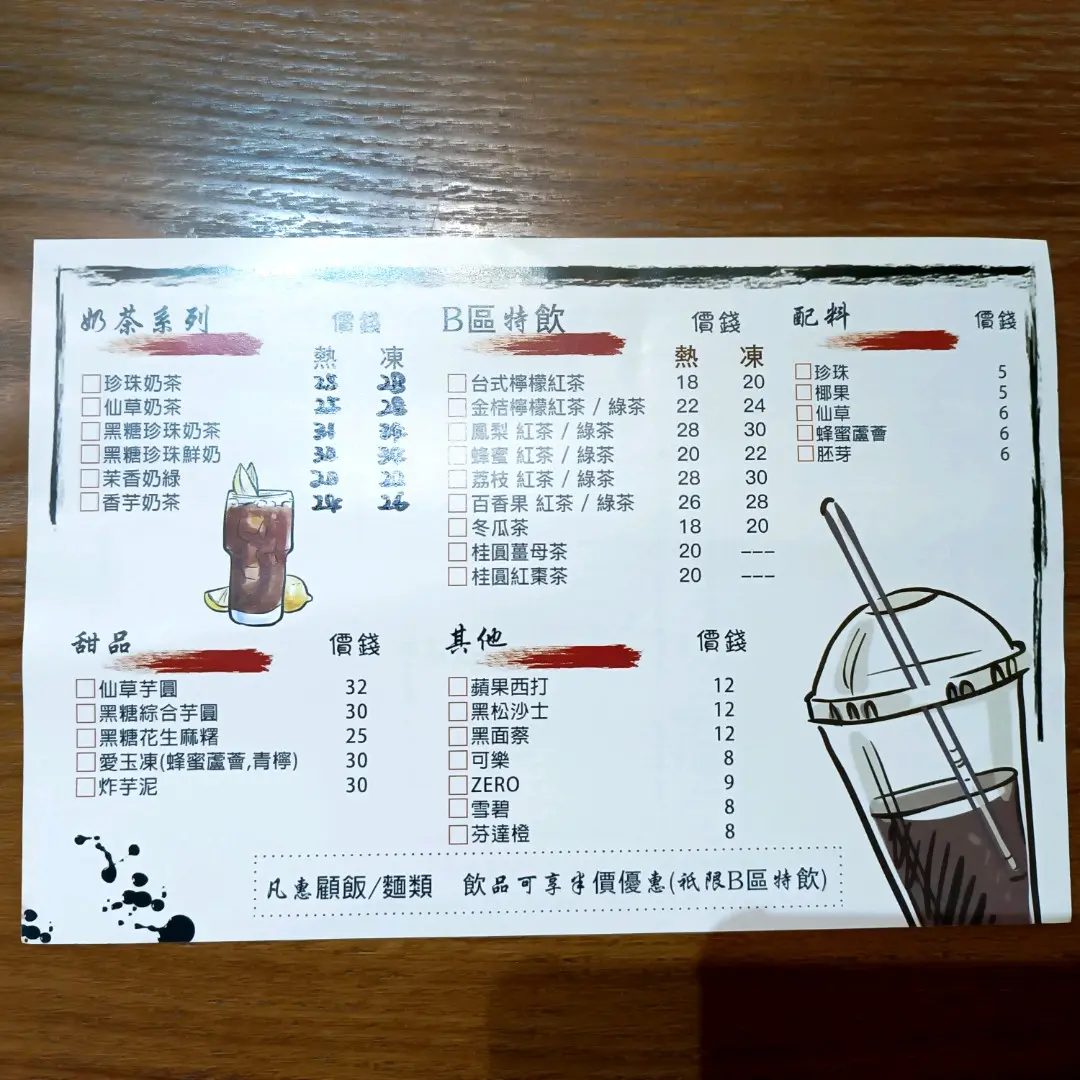 奶茶系列 價錢
熱 凍
珍珠奶茶
仙草奶茶
黑糖珍珠奶茶
黑糖珍珠鮮奶
茉香奶綠
香芋奶茶 24 26
B區特飲 價錢
熱 凍
台式檸檬紅茶 18 20
金桔檸檬紅茶 / 綠茶 22 24
鳳梨 紅茶 / 綠茶 28 30
蜂蜜 紅茶 / 綠茶 20 22
荔枝 紅茶 / 綠茶 28 30
百香果 紅茶 / 綠茶 26 28
冬瓜茶 18 20
桂圓薑母茶 20 ---
桂圓紅棗茶 20 ---
配料 價錢
珍珠 5
椰果 5
仙草 6
蜂蜜蘆薈 6
胚芽 6
甜品 價錢
仙草芋圓 32
黑糖綜合芋圓 30
黑糖花生麻糬 25
愛玉凍(蜂蜜蘆薈,青檸) 30
炸芋泥 30
其他 價錢
蘋果西打 12
黑松沙士 12
黑面蔡 12
可樂 8
ZERO 9
雪碧 8
芬達橙 8
凡惠顧飯/麵類 飲品可享半價優惠(祇限B區特飲)